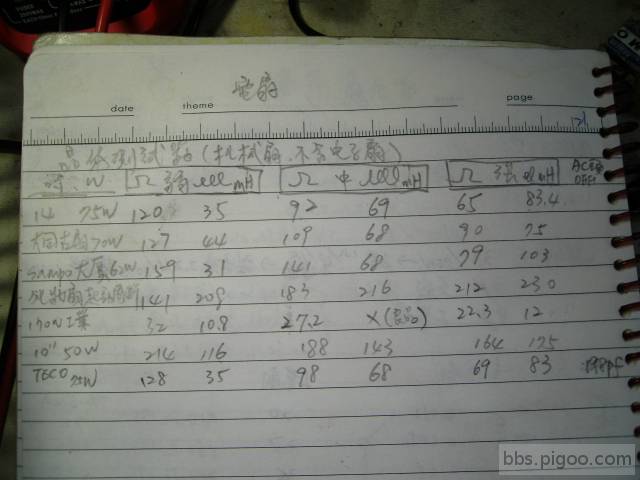 電扇
date theme page
測試數(机械扇.不含电子扇)
吋.W Ω 弱 mH Ω 中 mH Ω 強 mH AC
OFF
14 75W 120 35 92 69 65 83.4
70W 127 44 109 68 90 75
SAMPO大廈62W 159 31 141 68 79 103
141 209 183 216 212 230
170W工業 32 10.8 27.2 X 22.3 12
10" 50W 214 116 188 143 164 175
TECO 75W 128 35 98 68 69 83
bbs.pigoo.com